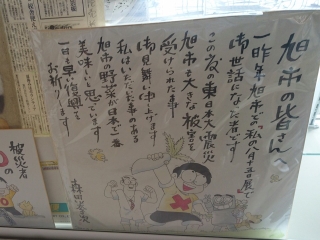 旭市の皆さんへ
一昨年旭市での「私の八月十五日展」で
御世話になった者です
この度の東日本大震災
旭市も大きな被害を
受けられた事
御見舞い申上げます
私はいただいた事のある
旭市の野菜が日本で一番
美味しいと思ています
一日も早い復興を
お祈りします
被災者
の